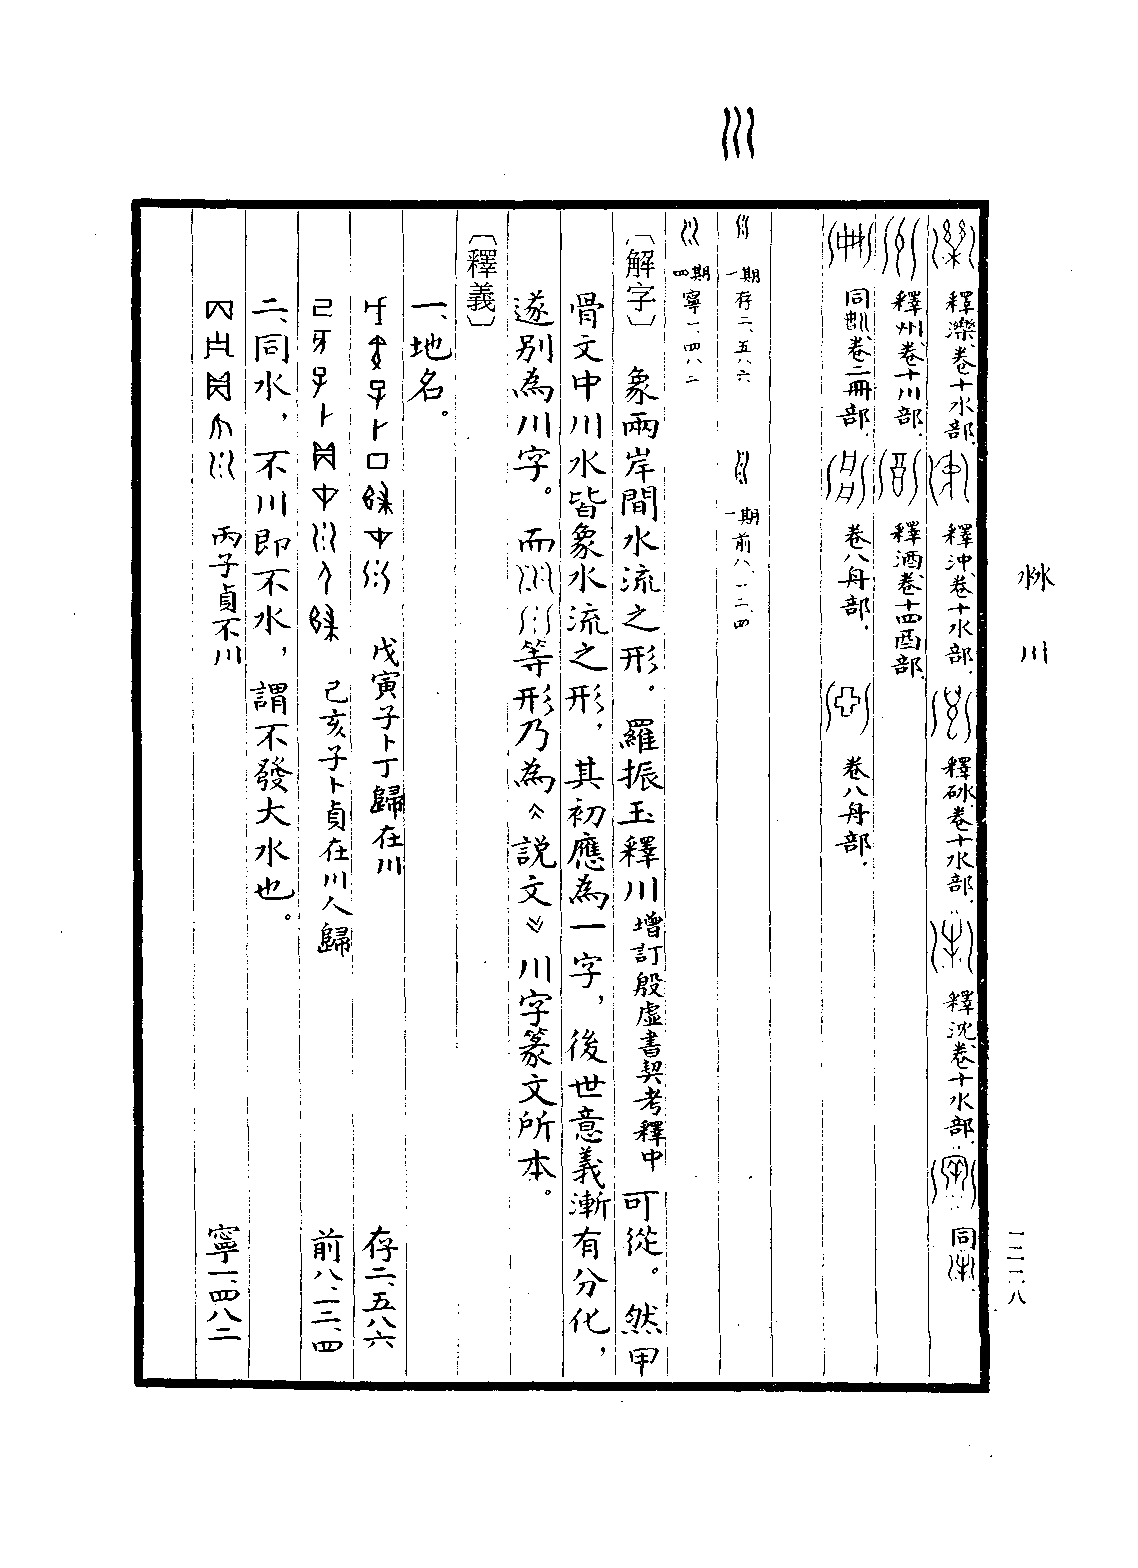 川
沝
川
一二一八
釋濼卷十水部.
釋沖卷十水部.
釋砅卷十水部.
釋沈卷十水部.
同
釋州卷十川部.
釋酒卷十四酉部.
同 卷二冊部.
卷八舟部.
卷八舟部.
一期 存二、五八六
一期 前八、一二、四
四期 寧一、四八二
〔解字〕 象兩岸間水流之形.羅振玉釋川增訂殷虛書契考釋中可從。然甲
骨文中川水皆象水流之形,其初應為一字,後世意義漸有分化,
遂別為川字。而 等形乃為《説文》川字篆文所本。
〔釋義〕
一、地名。
戊寅子卜丁歸在川 存二、五八六
己亥子卜貞在川人歸 前八、一二、四
二、同水,不川即不水,謂不發大水也。
丙子貞不川 寧一、四八二